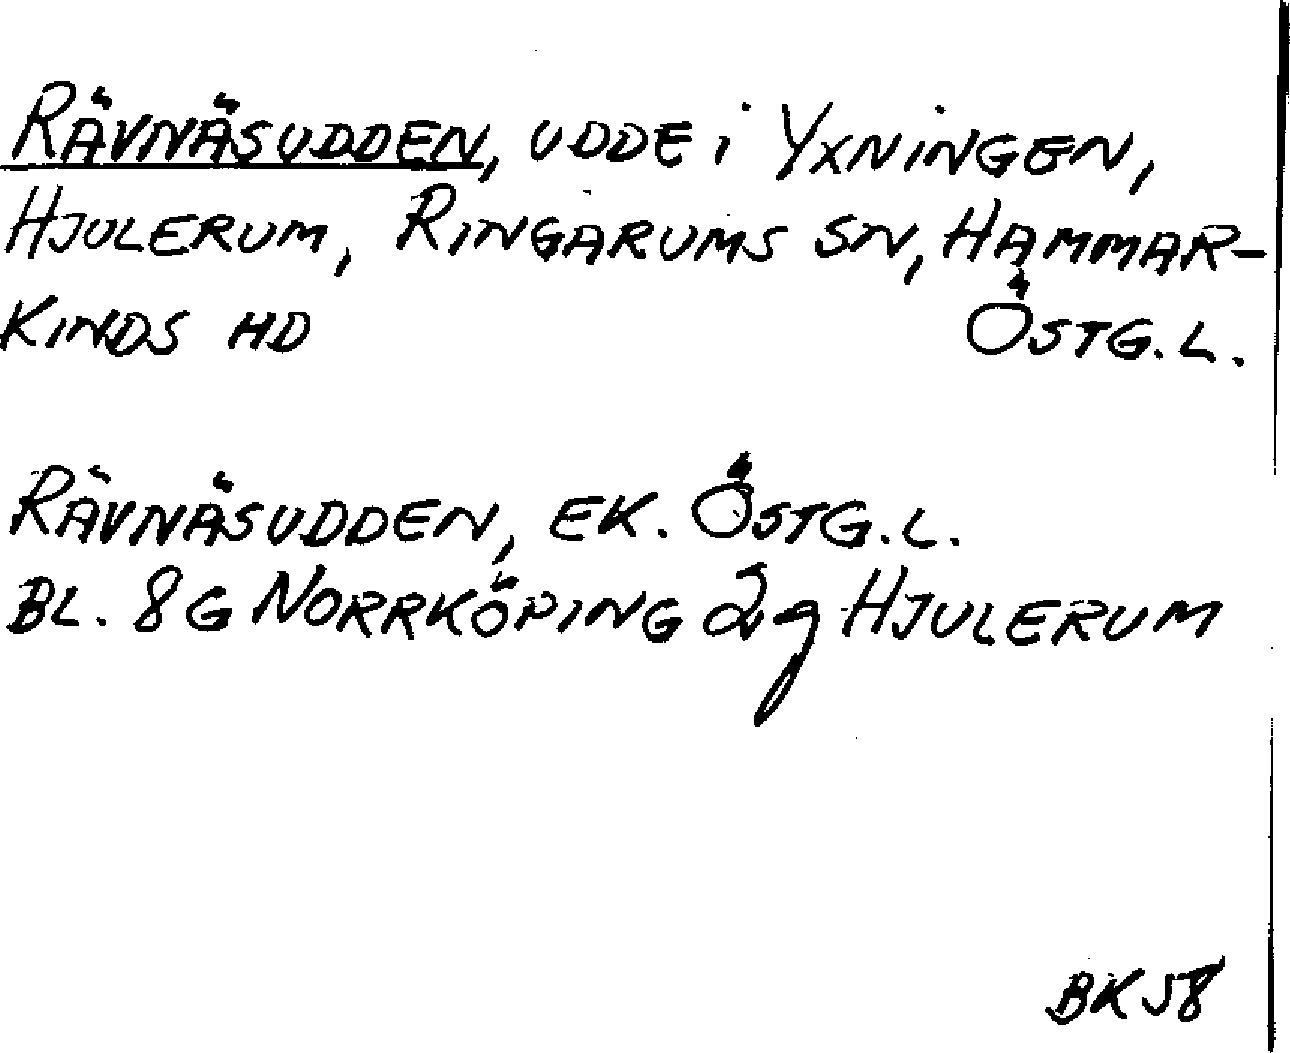 RÄVNÄSUDDEN, UDDE i YXNINGEN,
HJULERUM, RINGARUMS SN, HAMMAR-
KINDS HD ÖSTG.L.
RÄVNÄSUDDEN, EK. ÖSTG.L.
BL. 8G NORRKÖPING 2g HJULERUM
BK 58